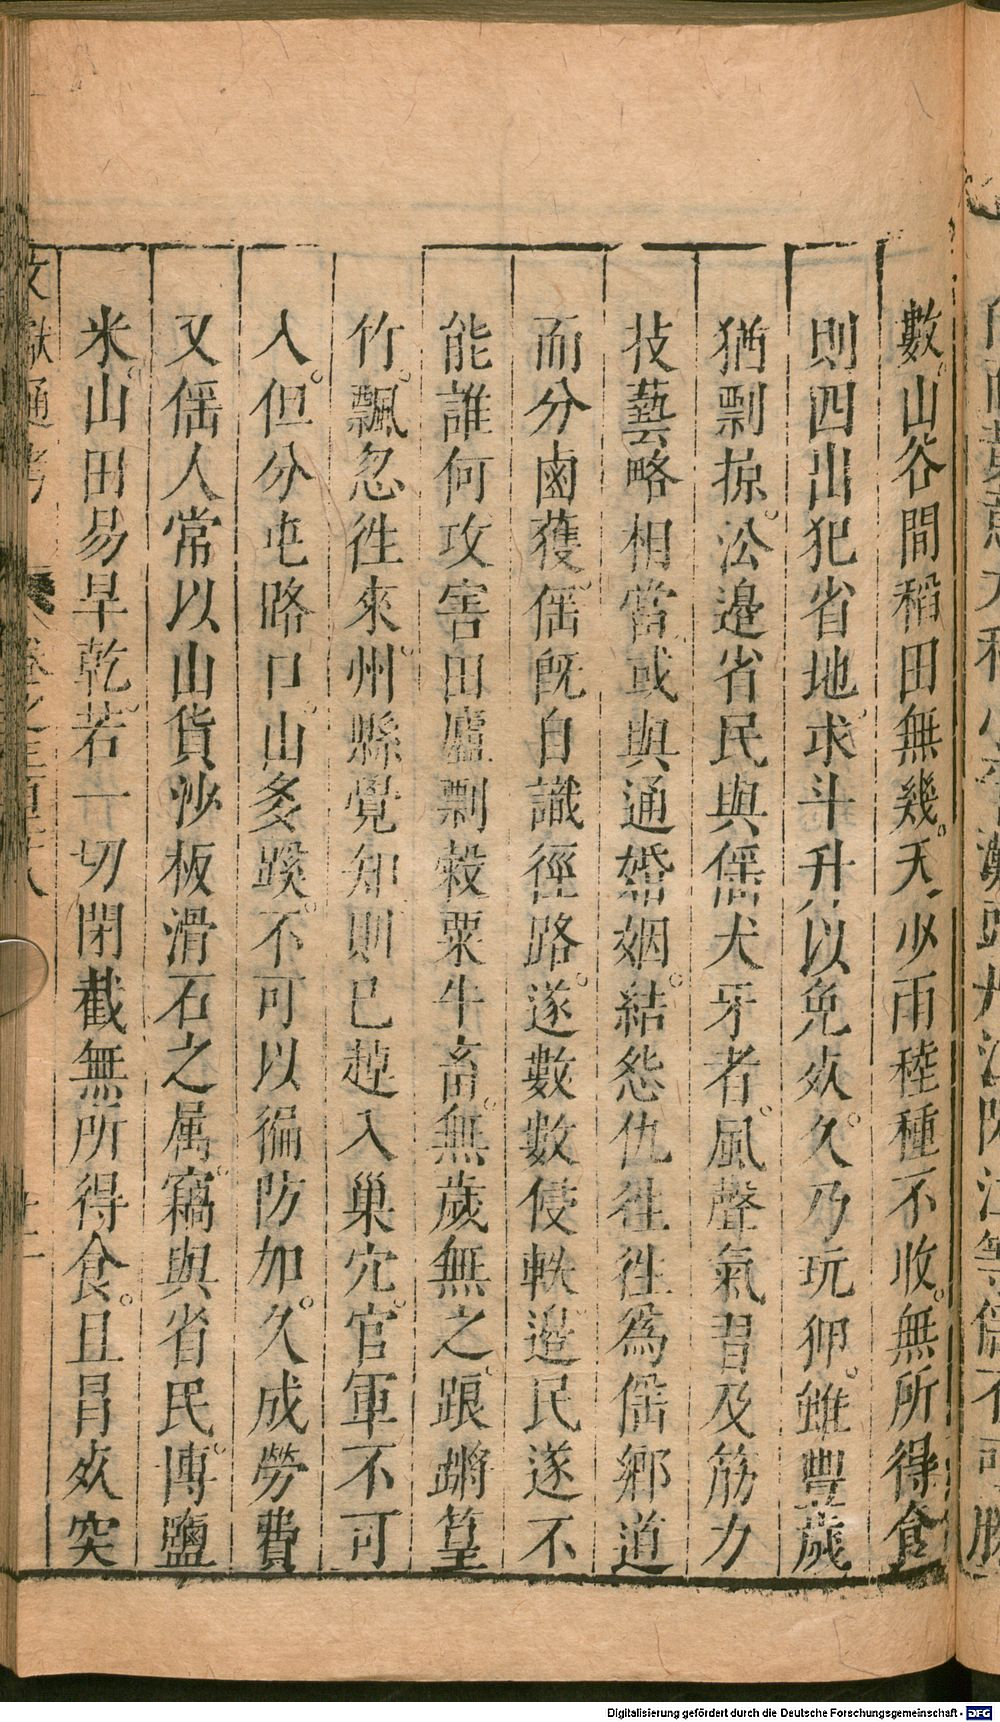 數。山谷間稻田無幾。天少雨稑種不收。無所得食
則四出犯省地。求斗升以免死。久乃玩狎。雖豐歲
猶剽掠。沿邊省民與傜犬牙者。風聲氣習及筋力
技藝略相當。或與通婚姻。結怨仇徃徃為傜鄉道
而分鹵獲。傜既自識徑路。遂數數侵軼邊民遂不
能誰何攻害田廬剽榖粟牛畜。無歲無之。踉蹡篁
竹。飄忽徃來。州縣覺知則已趠入巢穴。官軍不可
人。但分屯路口。山多蹊。不可以徧防加。久成勞費
又傜人常以山貨沙板滑石之属。竊與省民博。鹽
米。山田易旱乾。若一切閉截無所得食。且冒死突
文獻通考 卷之三百二十八
十二
Digitalisierung gefördert durch die Deutsche Forschungsgemeinschaft - DFG